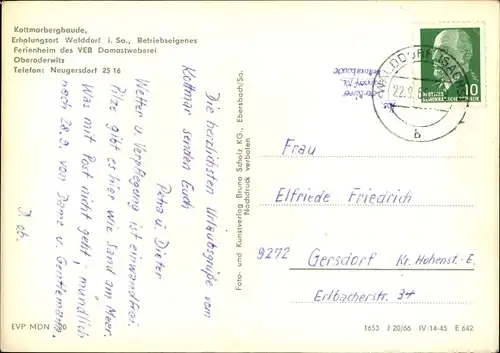 Kottmarbergbaude,
Erholungsort Walddorf i. Sa., Betriebseigenes
Ferienheim des VEB Damastweberei
Oberoderwitz
Telefon: Neugersdorf 25 16
Die herzlichsten Urlaubsgrüße vom
Kottmar senden Euch
Petra u. Dieter
Wetter u. Verpflegung ist einwandfrei.
Pilze gibt es hier wie Sand am Meer.
Was mit Post nicht geht, mündlich
nach 28.9. von Dame u. Gentlemann.
D. ob.
EVP MDN
Foto- und Kunstverlag Bruno Scholz KG., Ebersbach/Sa.
Nachdruck verboten
WALDDORF (SACHS)
22.9.
b
10
Frau
Elfriede Friedrich
9272 Gersdorf Kr. Hohenst.-E.
Erlbacherstr. 34
1653 J 20/66 IV-14-45 E 642